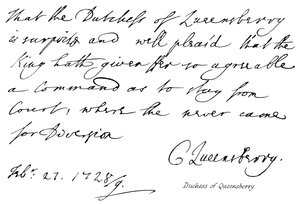 That the Dutchess of Queensberry
is surpris'd and well pleas'd that the
King hath given her so agreeable
a command as to stay from
Court, where she never came
for Diversion
C Queensberry.
Feb: 27. 1728/9.
Duchess of Queensberry